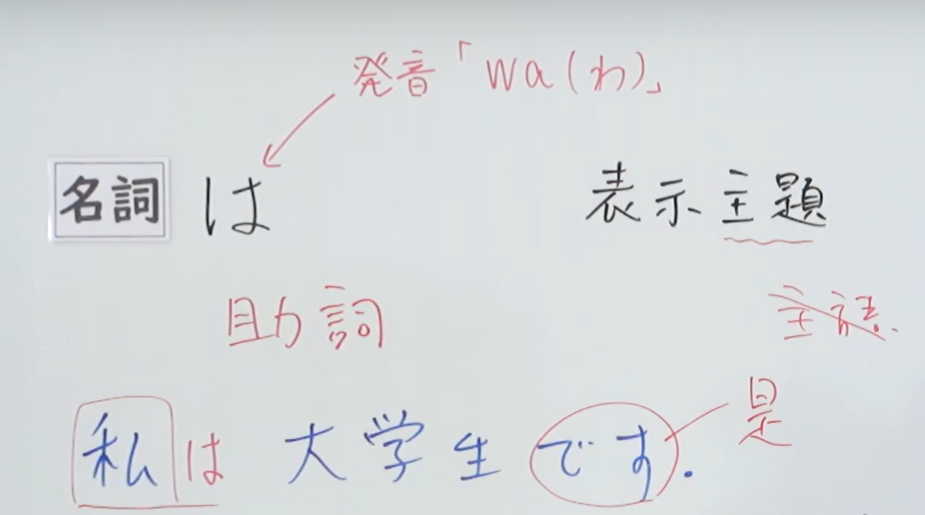 発音「wa(わ)」
名詞 は 表示主題
助詞 主語.
私は大学生です. 是